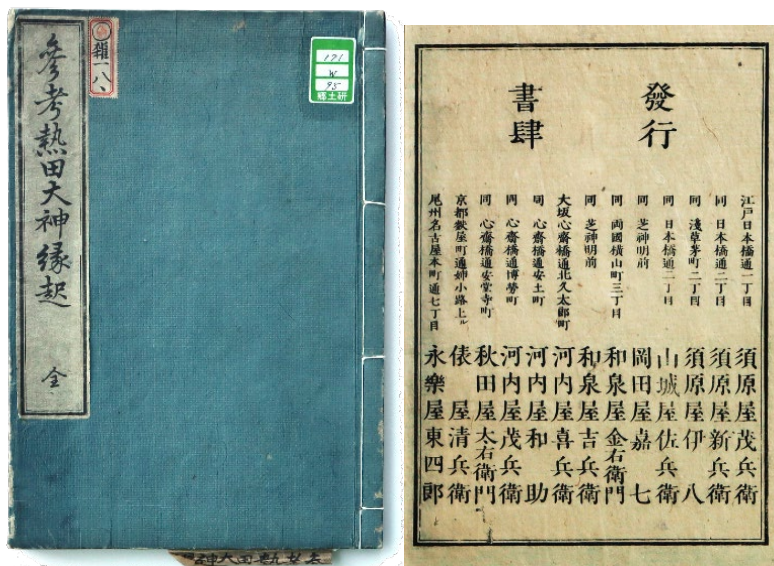 參考熱田大神縁起 全
雜一八、
121
W
95
郷土研
發行
書肆
江戸日本橋通一丁目 須原屋茂兵衛
同 日本橋通二丁目 須原屋新兵衛
同 淺草茅町二丁目 須原屋伊八
同 日本橋通二丁目 山城屋佐兵衛
同 芝神明前 岡田屋嘉七
同 両國横山町三丁目 和泉屋金右衛門
同 芝神明前 和泉屋吉兵衛
大坂心齋橋通北久太郎町 河内屋喜兵衛
同 心齋橋通安土町 河内屋和助
同 心齋橋通博勞町 河内屋茂兵衛
同 心齋橋通安堂寺町 秋田屋太右衛門
京都 屋町通姉小路上ル 俵屋清兵衛
尾州名古屋本町通七丁目 永樂屋東四郎